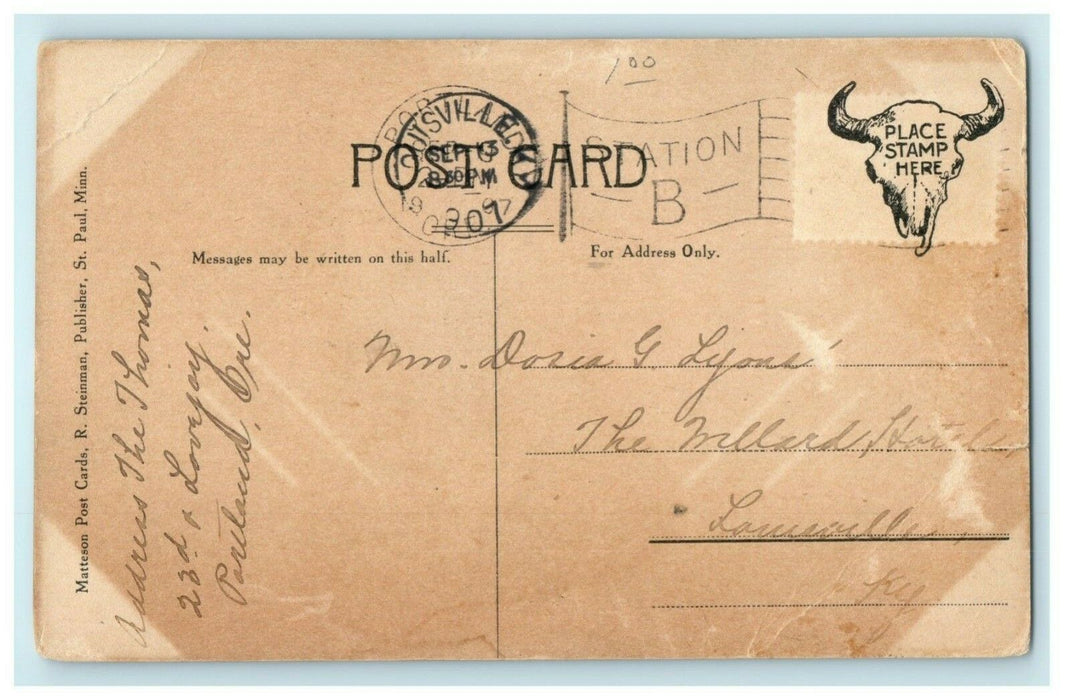 1 00
PLACE
STAMP
HERE
POST CARD
LOUISVILLE KY
SEP 15
8 30 PM
1907
STATION
B
Messages may be written on this half.
For Address Only.
Matteson Post Cards, R. Steinman, Publisher, St. Paul, Minn.
Address The Thomas,
23d & Lovejoy.
Portland, Ore.
Mrs. G. Lyons
The Willard Hotel
Louisville,
Ky